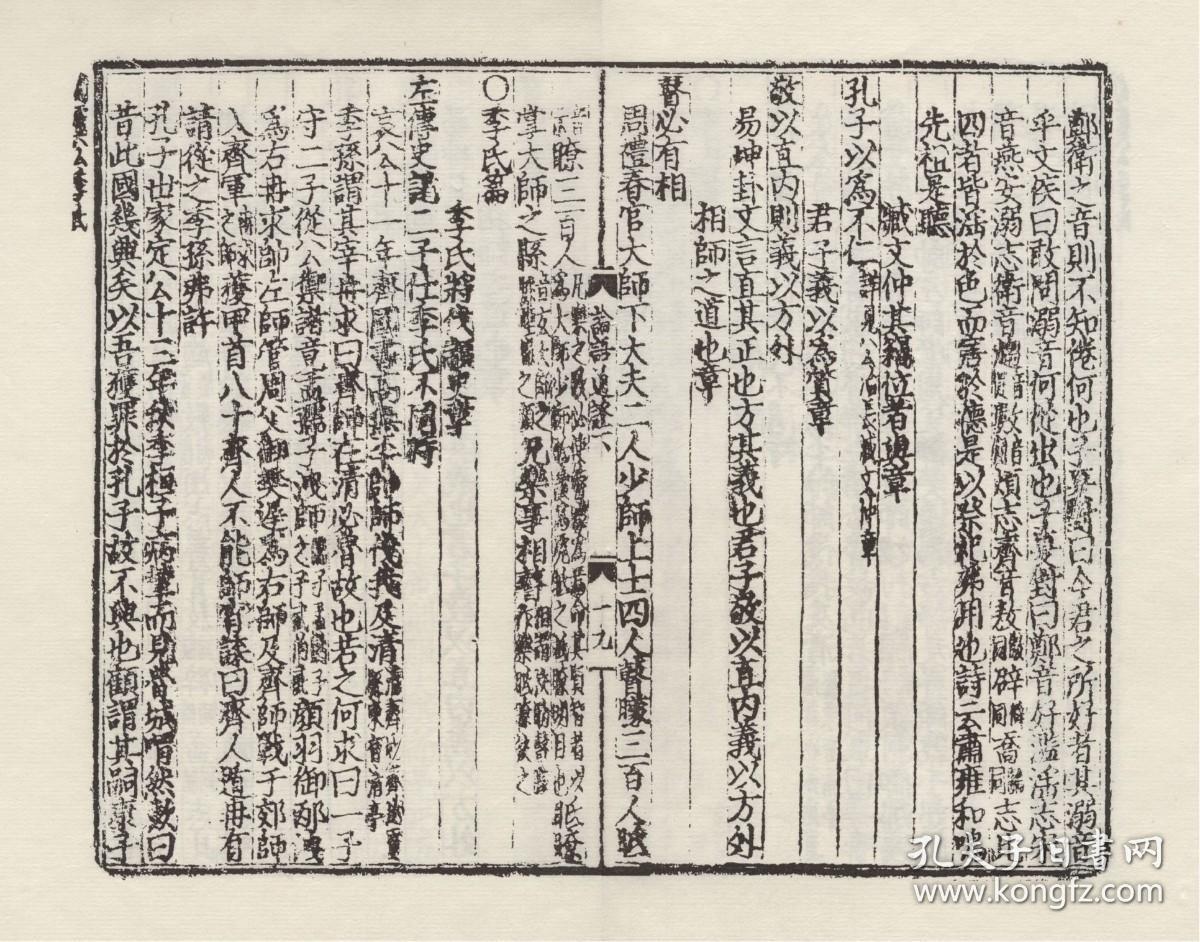 鄭衛之音則不知倦何也子夏對曰今君之所好者其溺音
乎文侯曰敢問溺音何從出也子夏對曰鄭音好濫淫志宋
音燕女溺志衛音煩志齊音敖辟喬志
四者皆淫於色而害於德是以祭祀弗用也詩云肅雍和鳴
先祖是聽
臧文仲其竊位者與章
孔子以為不仁詳見公冶長臧文仲章
君子義以為質章
敬以直內則義以方外
易坤卦文言直其正也方其義也君子敬以直內義以方外
相師之道也章
瞽必有相
周禮春官大師下大夫二人少師上士四人瞽矇三百人眡
瞭三百人
掌大師之縣凡樂事相瞽
〇季氏篇
季氏將伐顓臾章
左傳史記二子仕季氏不同時
哀公十一年齊國書高無㔻帥師伐我及清
季孫謂其宰冉求曰齊師在清必魯故也若之何求曰一子
守二子從公禦諸竟孟孺子洩帥右師顏羽御邴洩
為右冉求帥左師管周父御樊遲為右師及齊師戰于郊師
入齊軍獲甲首八十齊人不能師宵諜曰齊人遁冉有
請從之季孫弗許
孔子世家定公十三年秋季桓子病輦而見魯城喟然歎曰
昔此國幾興矣以吾獲罪於孔子故不興也顧謂其嗣康子
論語通證下
十九
孔夫子旧书网
www.kongfz.com